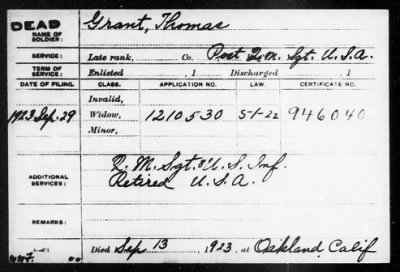 DEAD
NAME OF SOLDIER: Grant, Thomas
SERVICE: Late rank, Co. Post Q.M. Sgt. U.S.A.
TERM OF SERVICE: Enlisted , 1 Discharged , 1
DATE OF FILING. CLASS. APPLICATION NO. LAW. CERTIFICATE NO.
Invalid,
1923 Sep. 29 Widow, 1210530 5-1-22 946040
Minor,
ADDITIONAL SERVICES: Q. M. Sgt. U.S. Inf.
Retired U.S.A.
REMARKS:
Died Sep. 13, 1923, at Oakland, Calif